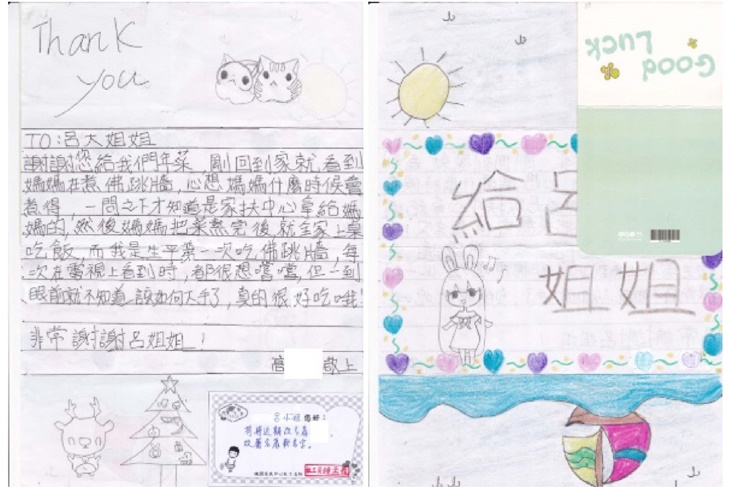 Thank
you
TO:呂大姐姐
謝謝您給我們年菜,剛回到家就看到
媽媽在煮佛跳牆,心想媽媽什麼時候會
煮得,一問之下才知道是家扶中心拿給媽
媽的,然後媽媽把菜煮完後就全家上桌
吃飯,而我是生平第一次吃佛跳牆,每
次在電視上看到時,都很想嚐嚐,但一到
眼前就不知道該如何大手了,真的很好吃哦!
非常謝謝呂姐姐!
高 敬上
呂小姐
GOOD
LUCK
給呂
姐姐